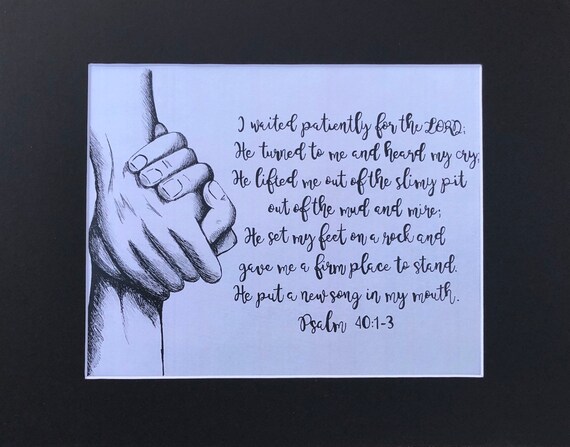 I waited patiently for the LORD;
He turned to me and heard my cry;
He lifted me out of the slimy pit
out of the mud and mire;
He set my feet on a rock and
gave me a firm place to stand.
He put a new song in my mouth.
Psalm 40:1-3